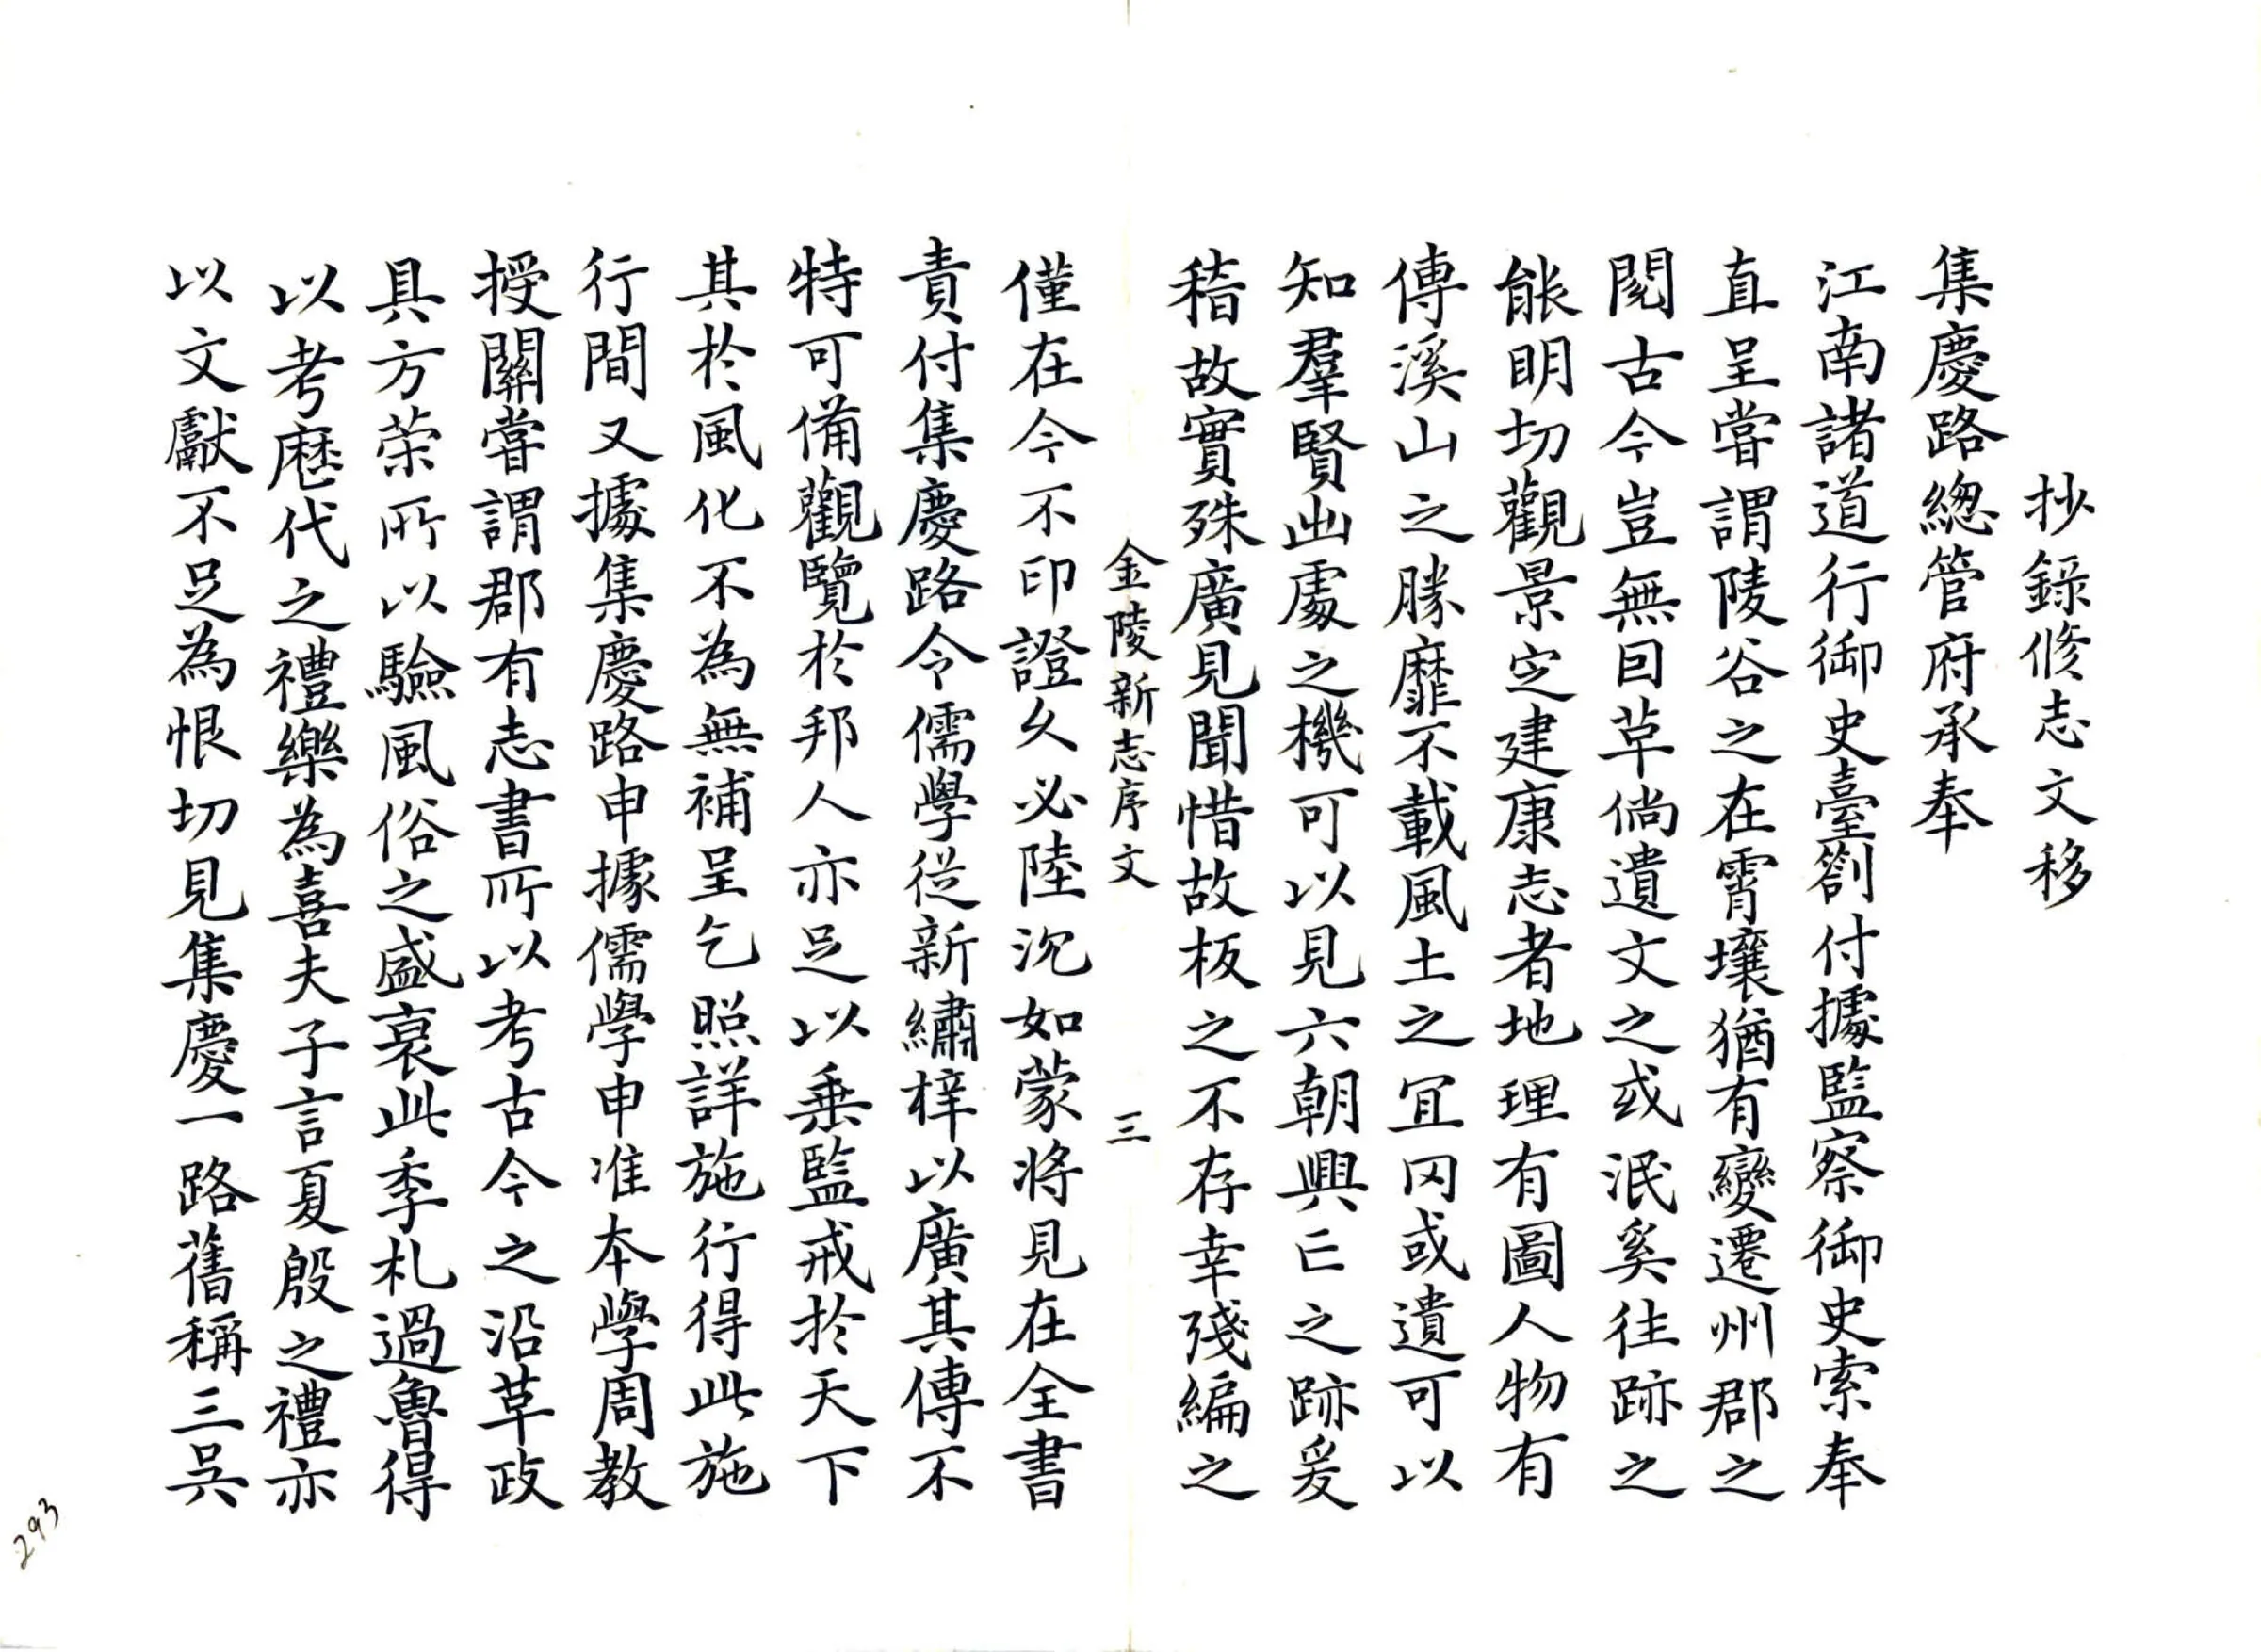 抄錄修志文移
集慶路緫管府承奉
江南諸道行御史臺劄付據監察御史索奉
直呈嘗謂陵谷之在霄壤猶有變遷州郡之
閱古今豈無因革倘遺文之或泯奚往跡之
能明切觀景定建康志者地理有圖人物有
傳溪山之勝靡不載風土之冝罔或遺可以
知羣賢出處之機可以見六朝興亡之跡爰
稽故實殊廣見聞惜故板之不存幸殘編之
金陵新志序文 三
僅在今不印證久必陸沉如蒙將見在全書
責付集慶路令儒學從新繡梓以廣其傳不
特可備觀覽於邦人亦足以垂監戒扵天下
其扵風化不為無補呈乞照詳施行得此施
行間又據集慶路申據儒學申准本學周教
授關嘗謂郡有志書所以考古今之沿革政
具方荣所以驗風俗之盛衰此季札過魯得
以考歷代之禮樂為喜夫子言夏殷之禮亦
以文獻不足為恨切見集慶一路舊稱三吳
293